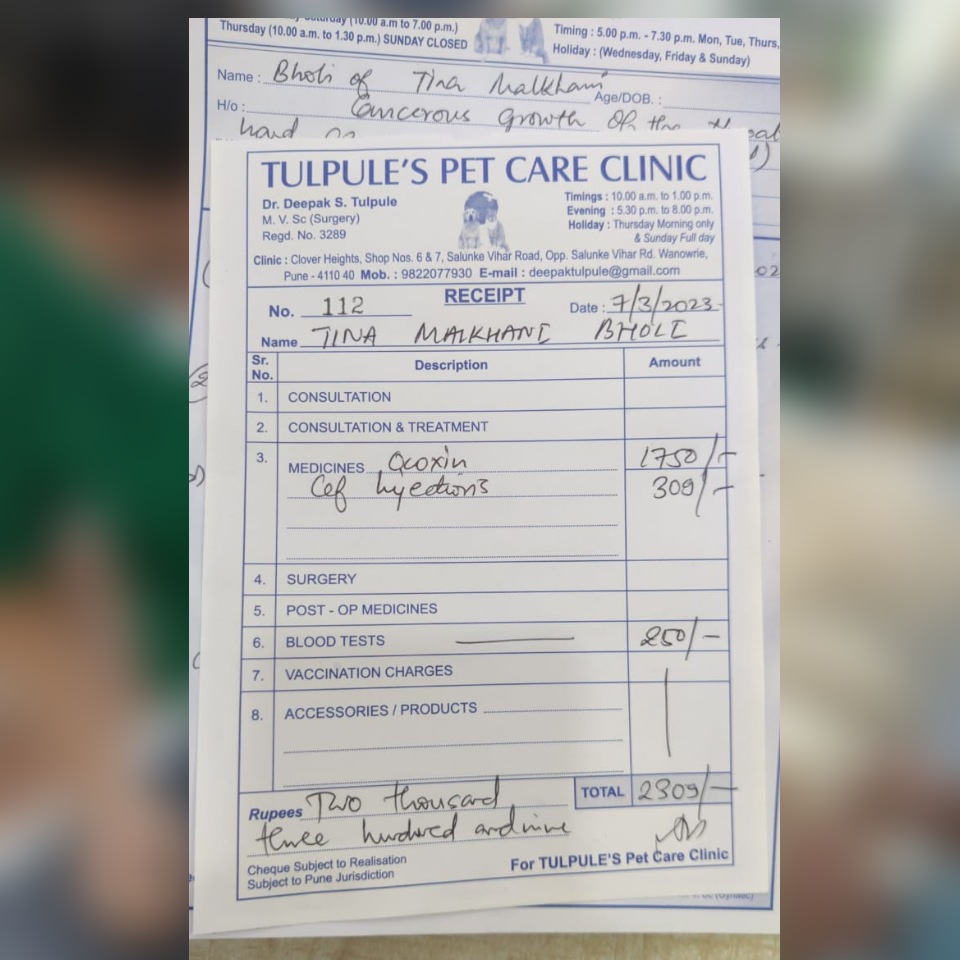 Saturday (10.00 a.m to 7.00 p.m.)
Thursday (10.00 a.m. to 1.30 p.m.) SUNDAY CLOSED
Timing : 5.00 p.m. - 7.30 p.m. Mon, Tue, Thurs,
Holiday : (Wednesday, Friday & Sunday)
Name : Bholi of Tina Malkhani Age/DOB. :
H/o : Cancerous Growth of the
hard
TULPULE'S PET CARE CLINIC
Dr. Deepak S. Tulpule
M. V. Sc (Surgery)
Regd. No. 3289
Timings : 10.00 a.m. to 1.00 p.m.
Evening : 5.30 p.m. to 8.00 p.m.
Holiday : Thursday Morning only
& Sunday Full day
Clinic : Clover Heights, Shop Nos. 6 & 7, Salunke Vihar Road, Opp. Salunke Vihar Rd. Wanowrie,
Pune - 4110 40 Mob. : 9822077930 E-mail : deepaktulpule@gmail.com
RECEIPT
No. 112 Date : 7/3/2023
Name TINA MALKHANI BHOLI
Sr. No. Description Amount
1. CONSULTATION
2. CONSULTATION & TREATMENT
3. MEDICINES Qcoxin 1750/-
Cef Injections 309/-
4. SURGERY
5. POST - OP MEDICINES
6. BLOOD TESTS 250/-
7. VACCINATION CHARGES
8. ACCESSORIES / PRODUCTS
TOTAL 2309/-
Rupees Two thousand
three hundred and nine
Cheque Subject to Realisation
Subject to Pune Jurisdiction
For TULPULE'S Pet Care Clinic